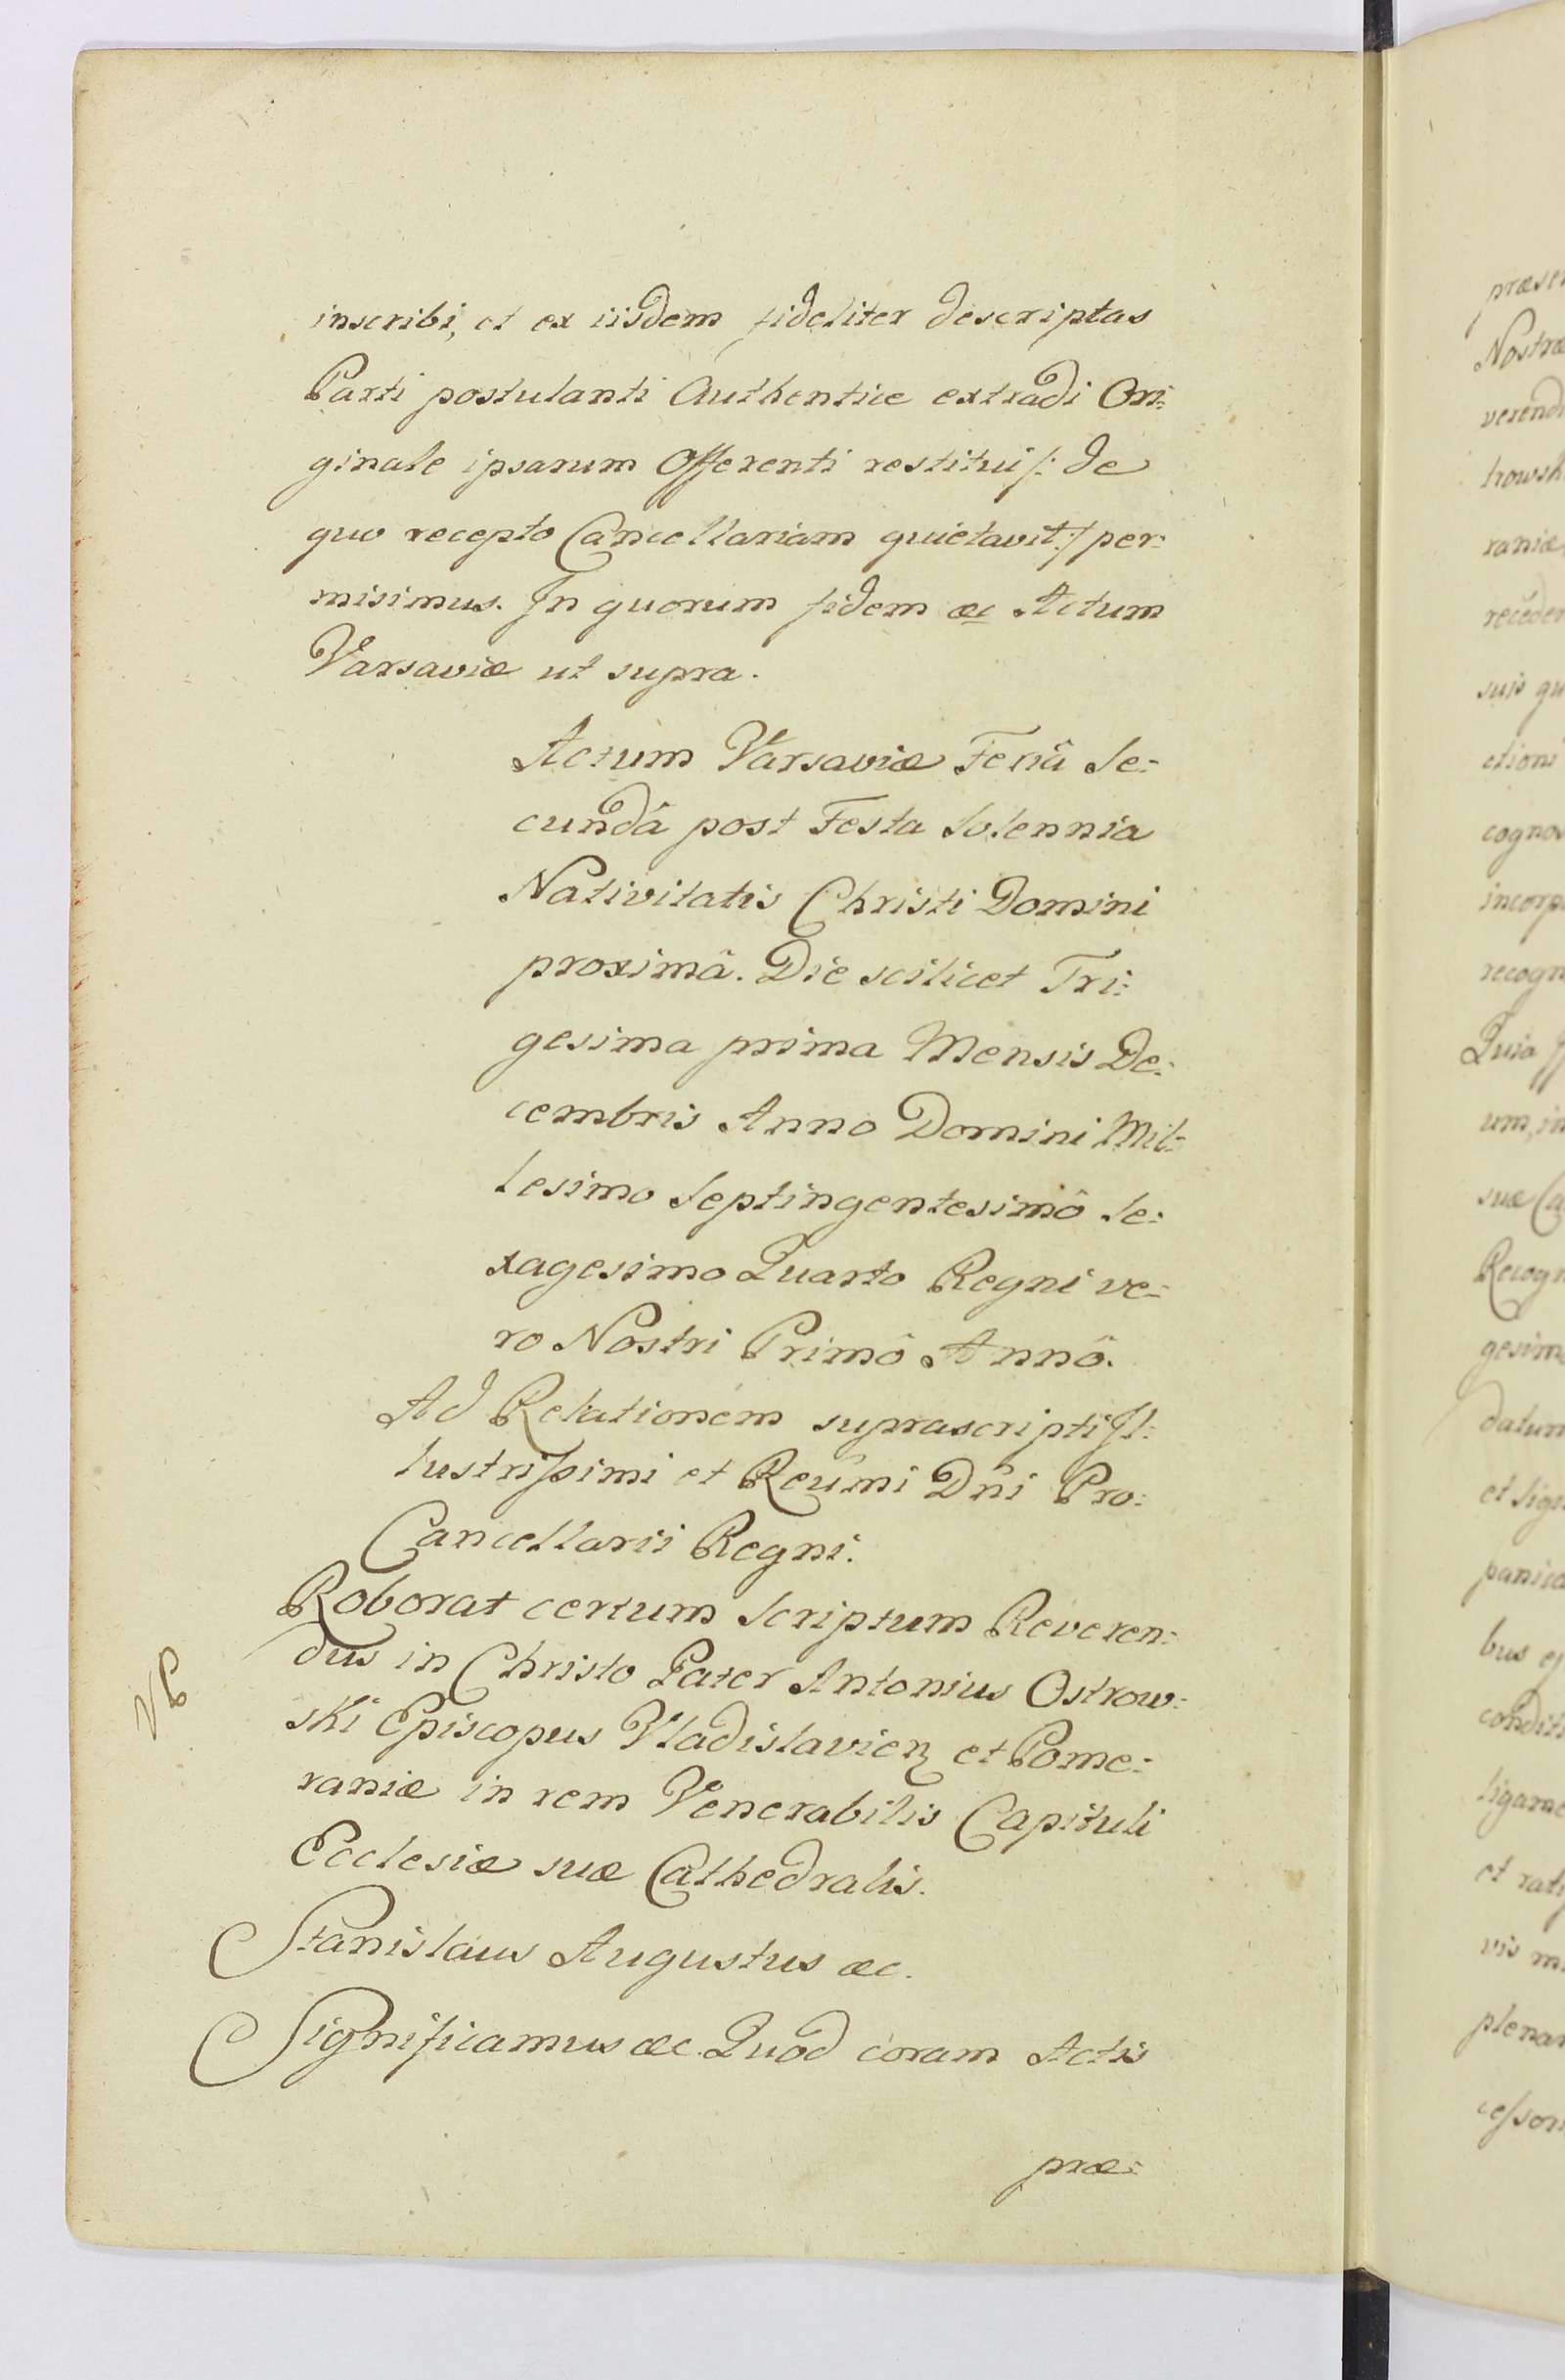 inscribi, et ex iisdem fideliter descriptas
Parti postulanti Authentice extradi Ori:
ginale ipsarum Offerenti restitui /: de
quo recepto Cancellariam quietavit :/ per:
misimus. In quorum fidem &c Actum
Varsaviæ ut supra.
Actum Varsaviæ Feriâ Se:
cundâ post Festa Solennia
Nativitatis Christi Domini
proximâ. Die scilicet Tri:
gesima prima Mensis De:
cembris Anno Domini Mil:
lesimo Septingentesimô Se:
xagesimo Quarto Regni ve:
ro Nostri Primô Annô.
Ad Relationem suprascripti Il:
lustrissimi et Reum̃i Dñi Pro:
Cancellarii Regni.
Roborat certum Scriptum Reveren:
dus in Christo Pater Antonius Ostrow:
ski Episcopus Vladislavien et Pome:
raniæ in rem Venerabilis Capituli
Ecclesiæ suæ Cathedralis.
Stanislaus Augustus &c.
Significamus &c. Quod coram Actis
præ:
præse
Nostræ
verend
trowsk
raniæ
receden
suis qu
ctioni
cognos
incorp
recogn
Quia
um, in
suæ Ca
Recogn
gesim
datum
et Sign
panisc
bus ej
condit
ligame
et rati
vis m
plenar
cessori